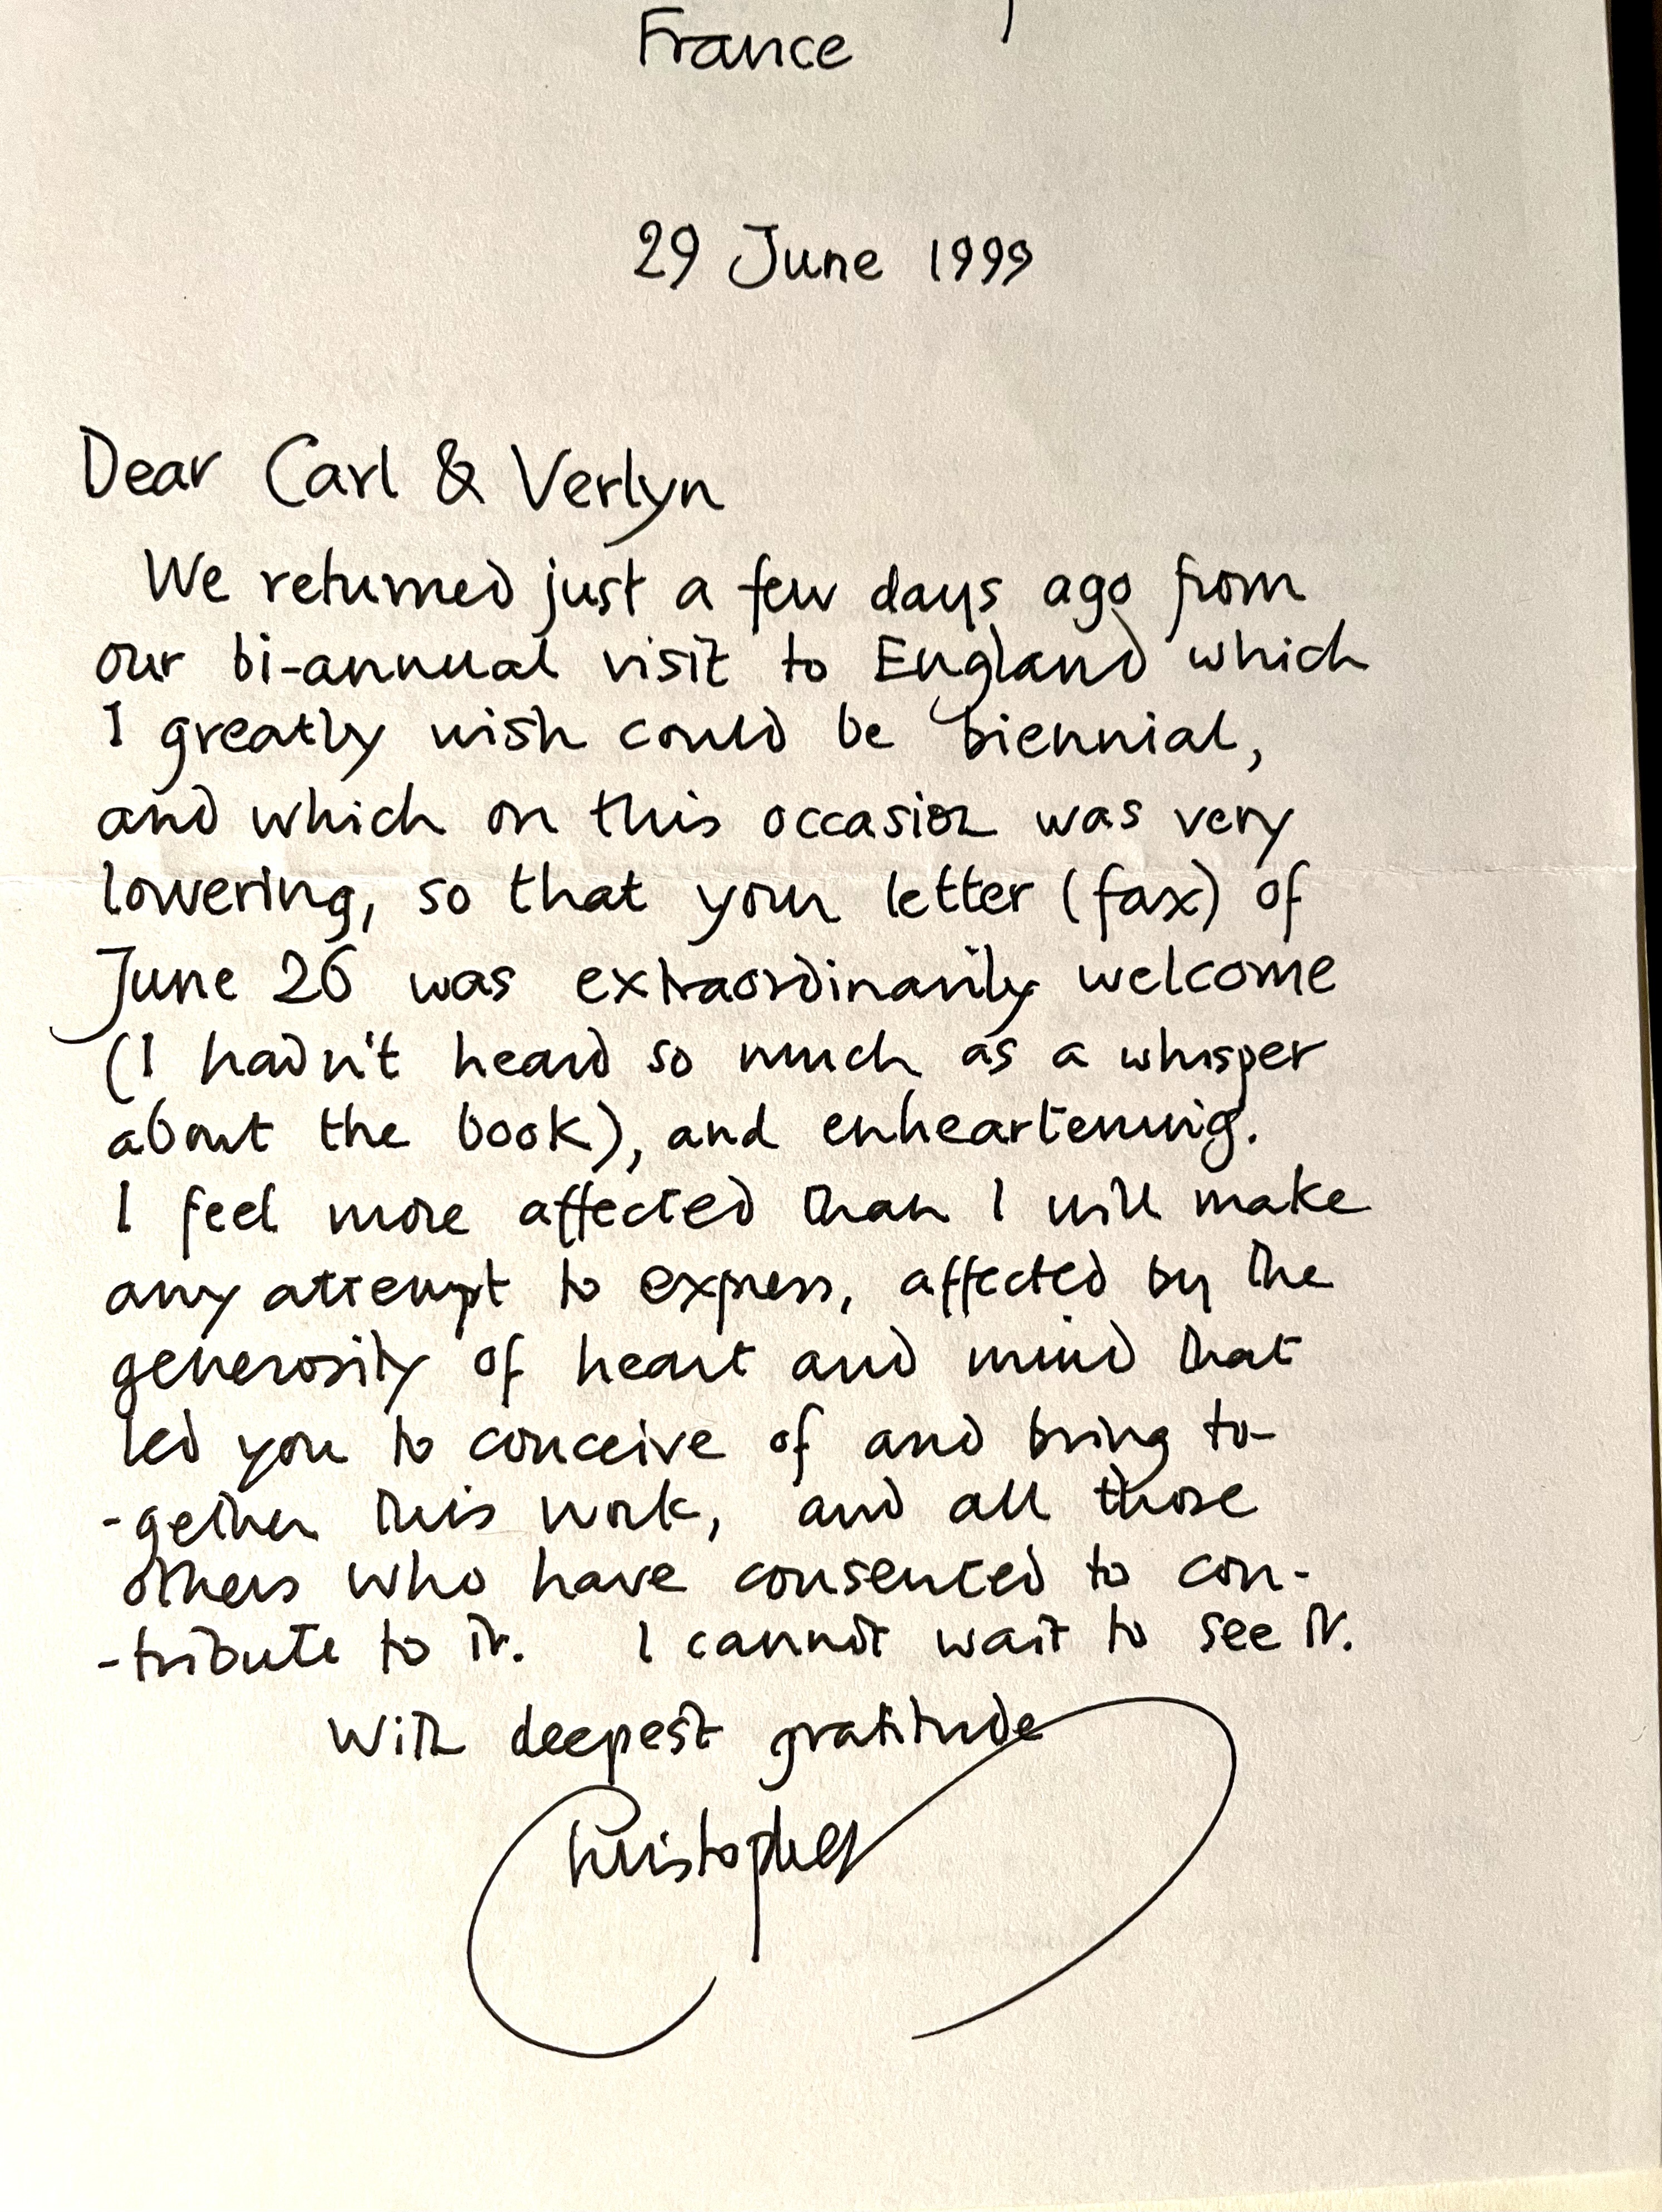 France
29 June 1999
Dear Carl & Verlyn
We returned just a few days ago from
our bi-annual visit to England which
I greatly wish could be biennial,
and which on this occasion was very
lowering, so that your letter (fax) of
June 26 was extraordinarily welcome
(I hadn't heard so much as a whisper
about the book), and enheartening.
I feel more affected than I will make
any attempt to express, affected by the
generosity of heart and mind that
led you to conceive of and bring to-
-gether this work, and all those
others who have consented to con-
-tribute to it. I cannot wait to see it.
With deepest gratitude
Christopher